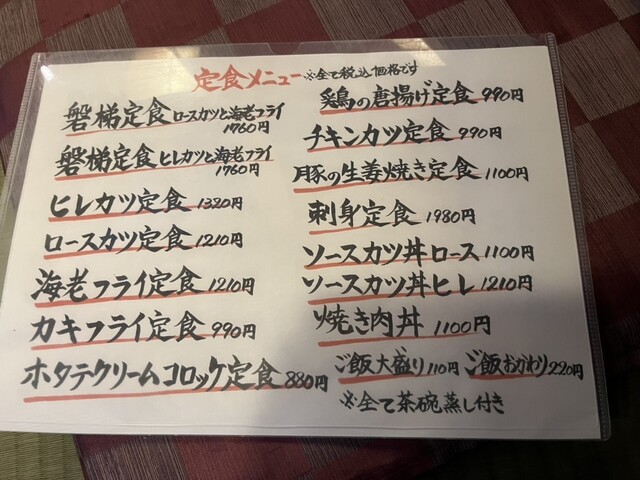 定食メニュー ※全て税込価格です
磐梯定食 ロースカツと海老フライ
1760円
磐梯定食 ヒレカツと海老フライ
1760円
ヒレカツ定食 1320円
ロースカツ定食 1210円
海老フライ定食 1210円
カキフライ定食 990円
ホタテクリームコロッケ定食 880円
鶏の唐揚げ定食 990円
チキンカツ定食 990円
豚の生姜焼き定食 1100円
刺身定食 1980円
ソースカツ丼 ロース 1100円
ソースカツ丼 ヒレ 1210円
焼き肉丼 1100円
ご飯大盛り 110円 ご飯おかわり 220円
※全て茶碗蒸し付き